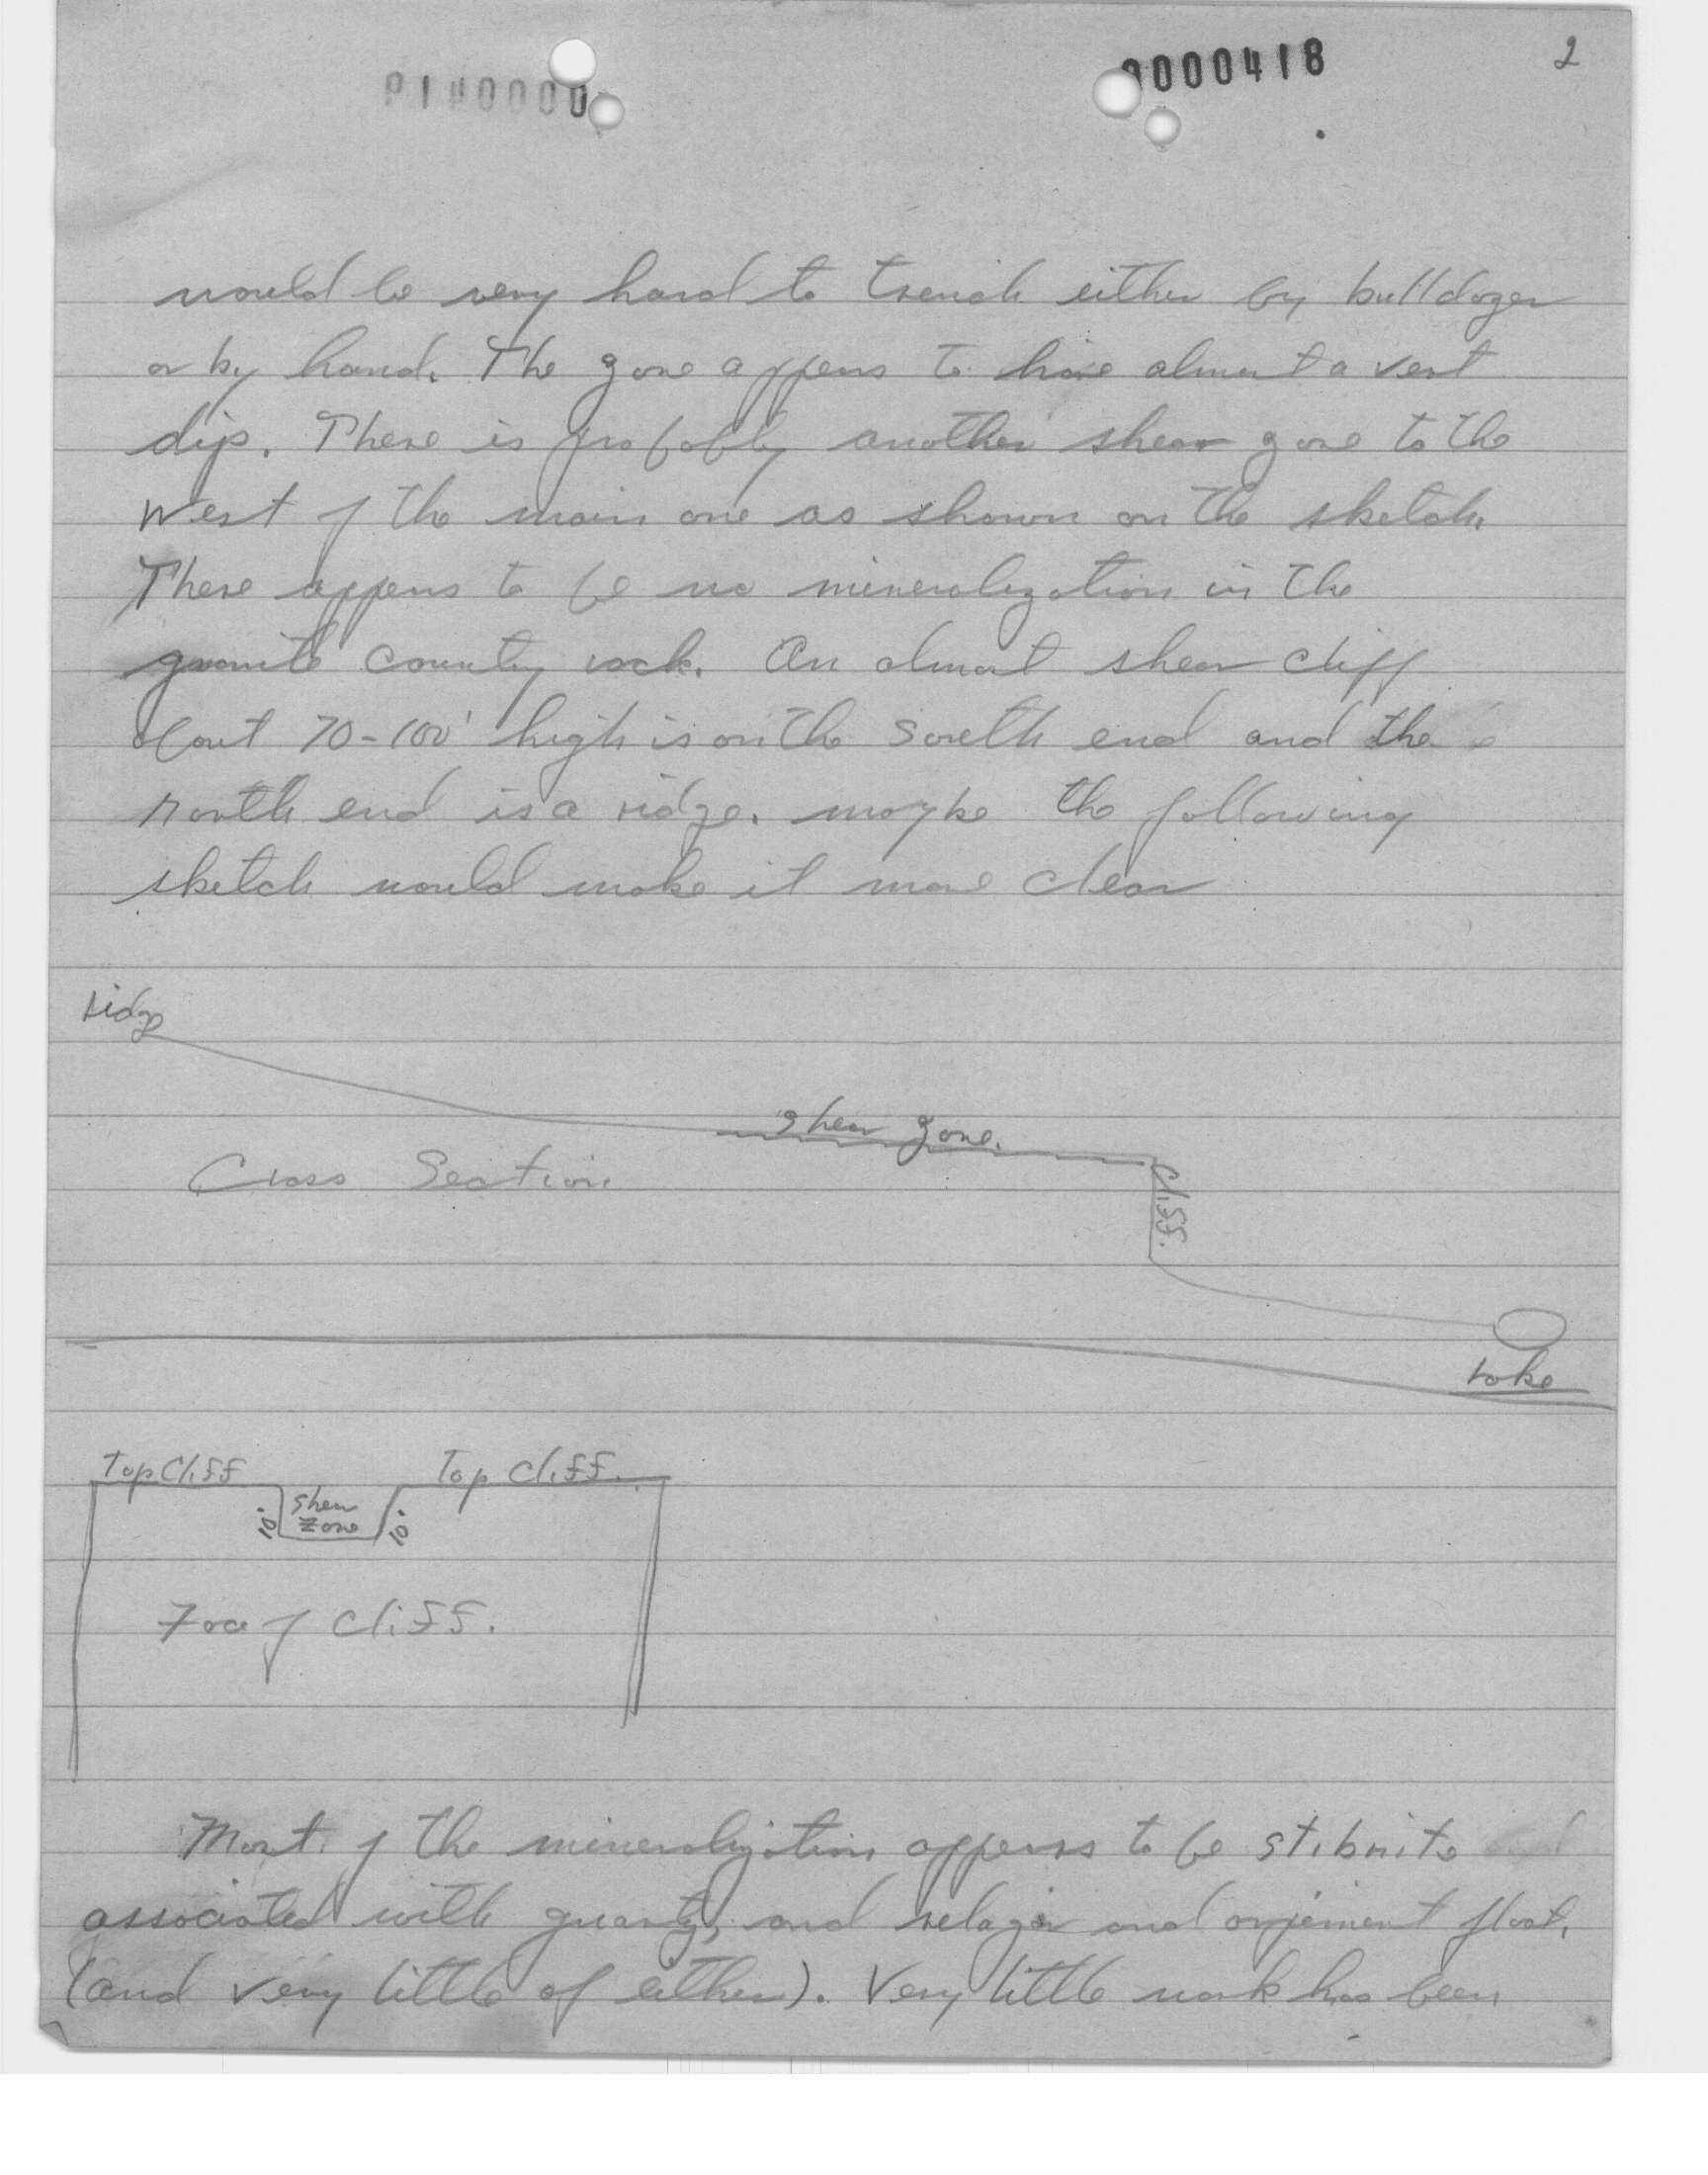 2
would be very hard to trench either by bulldozer
or by hand. The zone appers to have almost a vert
dip. There is probably another shear zone to the
West of the main one as shown on the sketch.
There appers to be no mineralization in the
granite country rock. An almost shear cliff
about 70-100' high is on the South end and the
north end is a ridge. maybe the following
sketch would make it more clear
ridge
shear zone.
Cross Section
cliff.
Lake
Top Cliff
Top Cliff.
10'
shear
zone
10'
Face of Cliff.
Most of the mineralization appears to be stibnite
associated with quartz, and relagar and orpiment float.
(and very little of either). Very little work has been